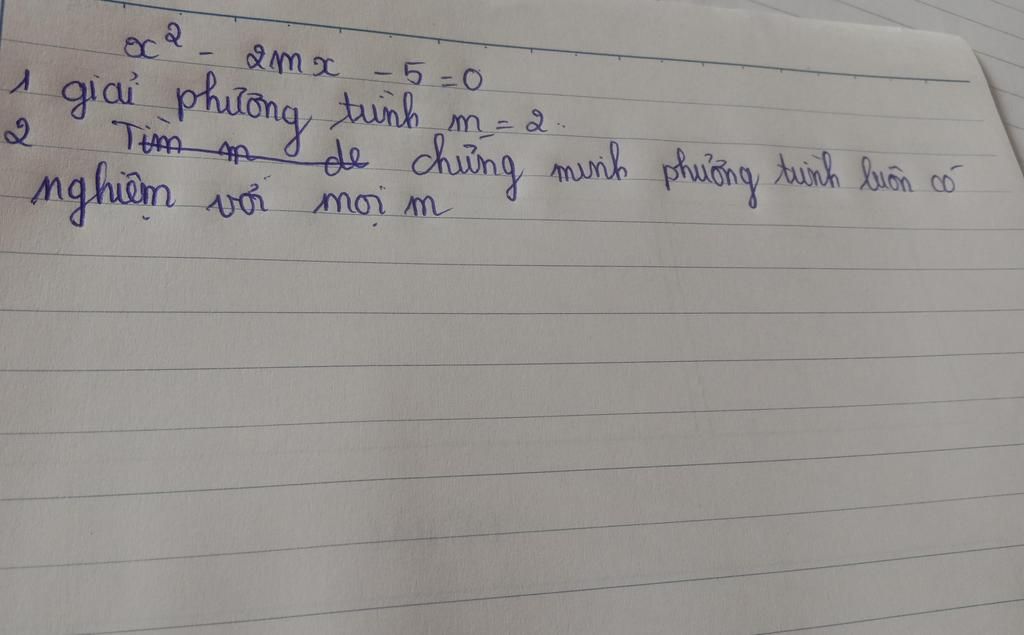 x² - 2mx - 5 = 0
1 giải phương trình m = 2
2 Tìm m de chứng minh phương trình luôn có
nghiệm với mọi m